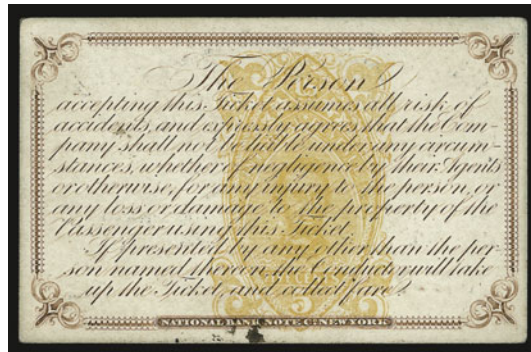 The Person
accepting this Ticket assumes all risk of
accidents, and expressly agrees that the Com-
pany shall not be liable under any circum-
stances, whether of negligence by their Agents
or otherwise, for any injury to the person, or
any loss or damage to the property of the
Passenger using this Ticket.
If presented by any other than the per-
son named thereon the Conductor will take
up the Ticket and collect fare.
NATIONAL BANK NOTE CO. NEW YORK